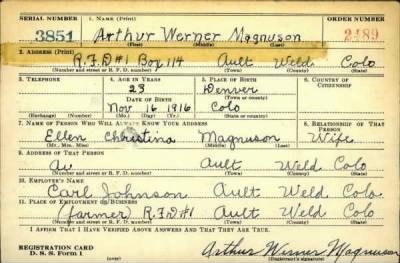 SERIAL NUMBER 1. NAME (Print) ORDER NUMBER
3851 Arthur Werner Magnuson 2489
(First) (Middle) (Last)
2. ADDRESS (Print)
R.F.D #1 Box 114 Ault Weld Colo
(Number and street or R. F. D. number) (Town) (County) (State)
3. TELEPHONE 4. AGE IN YEARS 5. PLACE OF BIRTH 6. COUNTRY OF CITIZENSHIP
23 Denver
DATE OF BIRTH (Town or county)
Nov 16 1916 Colo
(Exchange) (Number) (Mo.) (Day) (Yr.) (State or country)
7. NAME OF PERSON WHO WILL ALWAYS KNOW YOUR ADDRESS 8. RELATIONSHIP OF THAT PERSON
Ellen Christina Magnuson Wife
(Mr., Mrs., Miss) (First) (Middle) (Last)
9. ADDRESS OF THAT PERSON
Ault Weld Colo
(Number and street or R. F. D. number) (Town) (County) (State)
10. EMPLOYER'S NAME
Carl Johnson Ault Weld Colo
11. PLACE OF EMPLOYMENT OR BUSINESS
(farmer) R.F.D #1 Ault Weld Colo
(Number and street or R. F. D. number) (Town) (County) (State)
I AFFIRM THAT I HAVE VERIFIED ABOVE ANSWERS AND THAT THEY ARE TRUE.
REGISTRATION CARD
D. S. S. Form 1 (over) Arthur Werner Magnuson
(Registrant's signature)